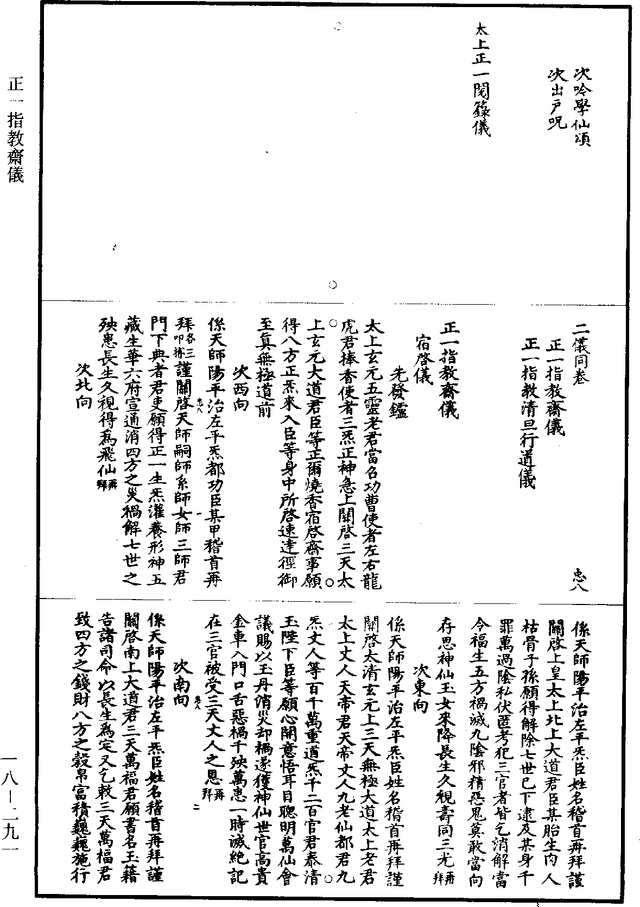 正一指教齋儀
一八—二九一
次唫學仙頌
次出戶呪
太上正一閱籙儀
二儀同卷 忠八
正一指教齋儀
正一指教清旦行道儀
正一指教齋儀
宿啓儀
先發鑪
太上玄元五靈老君當召功曹使者左右龍
虎君捧香使者三炁正神急上關啓三天太
上玄元大道君臣等正爾燒香宿啓齋事願
得八方正炁來入臣等身中所啓速達徑御
至真無極道前
次西向
係天師陽平治左平炁都功臣某甲稽首再
拜各三叩搏謹關啓天師嗣師系師女師三師君
門下典者君吏願得正一生炁灌養形神五
藏生華六府宣通消四方之災禍解七世之
殃患長生久視得為飛仙再拜
次北向
係天師陽平治左平炁臣姓名稽首再拜謹
關啓上皇太上北上大道君臣某胎生肉人
枯骨子孫願得解除七世已下逮及某身千
罪萬過陰私伏匿考犯三官者皆乞消解當
令福生五方禍滅九陰邪精惡鬼莫敢當向
存思神仙玉女來降長生久視壽同三光再拜
次東向
係天師陽平治左平炁臣姓名稽首再拜謹
關啓太清玄元上三天無極大道太上老君
太上丈人天帝君天帝丈人九老仙都君九
炁丈人等百千萬重道炁千二百官君泰清
玉陛下臣等願心開意悟耳目聰明萬仙會
議賜以玉丹消災却禍遂獲神仙世官高貴
金車入門口舌惡禍千殃萬患一時滅絕記
在三官被受三天丈人之恩再拜
次南向
係天師陽平治左平炁臣姓名稽首再拜謹
關啓南上大道君三天萬福君願書名玉籍
告諸司命以長生為定又乞敕三天萬福君
致四方之錢財八方之穀帛富積巍巍施行